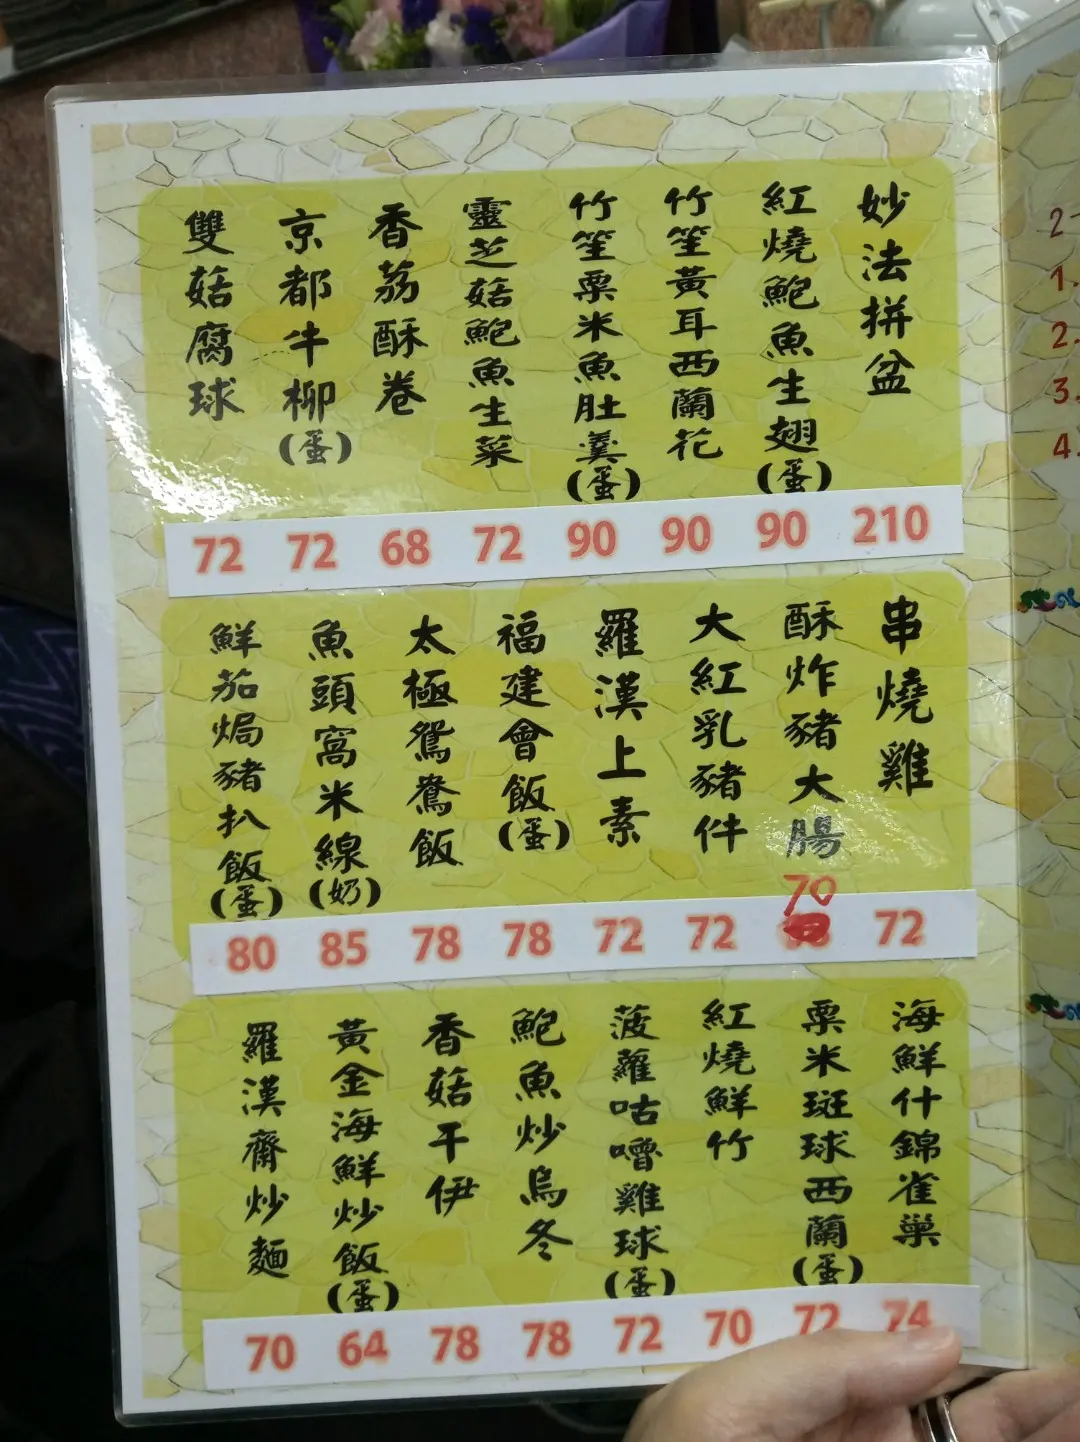 妙法拼盆
紅燒鮑魚生翅(蛋)
竹笙黃耳西蘭花
竹笙粟米魚肚羹(蛋)
靈芝菇鮑魚生菜
香荔酥卷
京都牛柳(蛋)
雙菇腐球
72 72 68 72 90 90 90 210
串燒雞
酥炸豬大腸
大紅乳豬件
羅漢上素
福建會飯(蛋)
太極鴛鴦飯
魚頭窩米線(奶)
鮮茄焗豬扒飯(蛋)
80 85 78 78 72 72 70 72
海鮮什錦雀巢
粟米斑球西蘭(蛋)
紅燒鮮竹
菠蘿咕嚕雞球(蛋)
鮑魚炒烏冬
香菇干伊
黃金海鮮炒飯(蛋)
羅漢齋炒麵
70 64 78 78 72 70 72 74
2
1.
2.
3.
4.